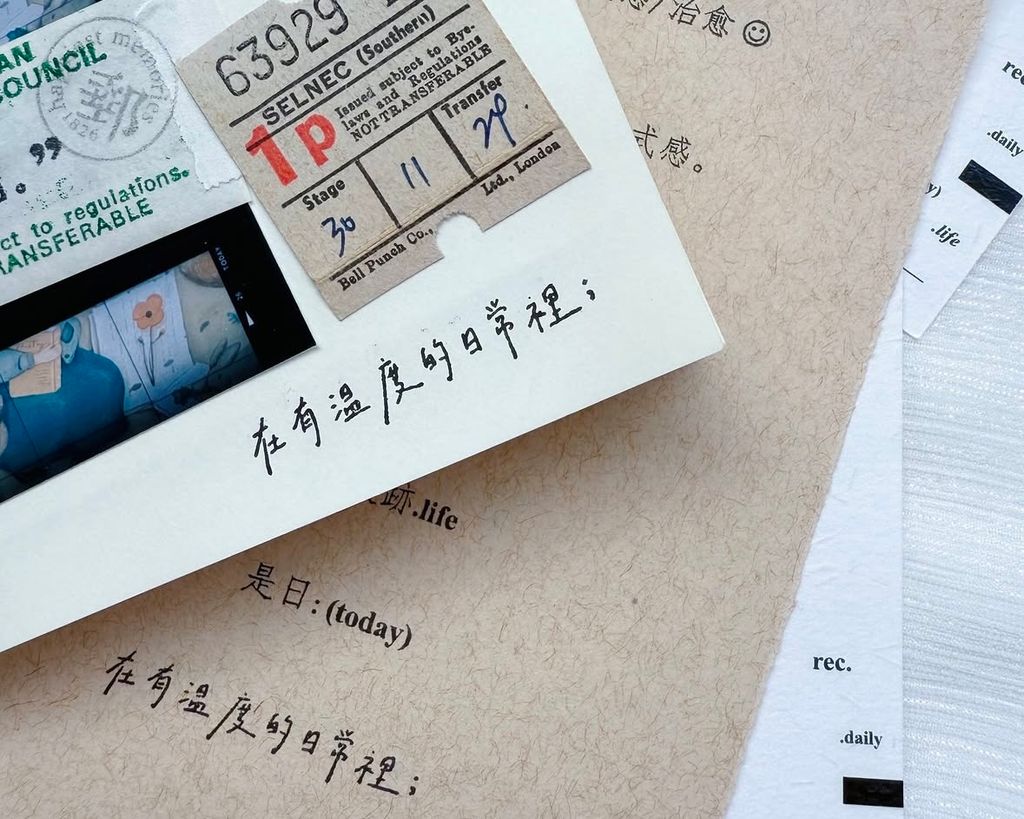 AN
COUNCIL
happiest memories
”
ct to regulations.
RANSFERABLE
63929
SELNEC (Southern)
1p
Issued subject to Bye-
laws and Regulations
NOT TRANSFERABLE
Stage
30
11
Transfer
Bell Punch Co., Ltd., London
TODAY
在有温度的日常裡;
治愈☺
式感。
跡.life
是日:(today)
在有温度的日常裡;
rec
.daily
.life
rec.
.daily